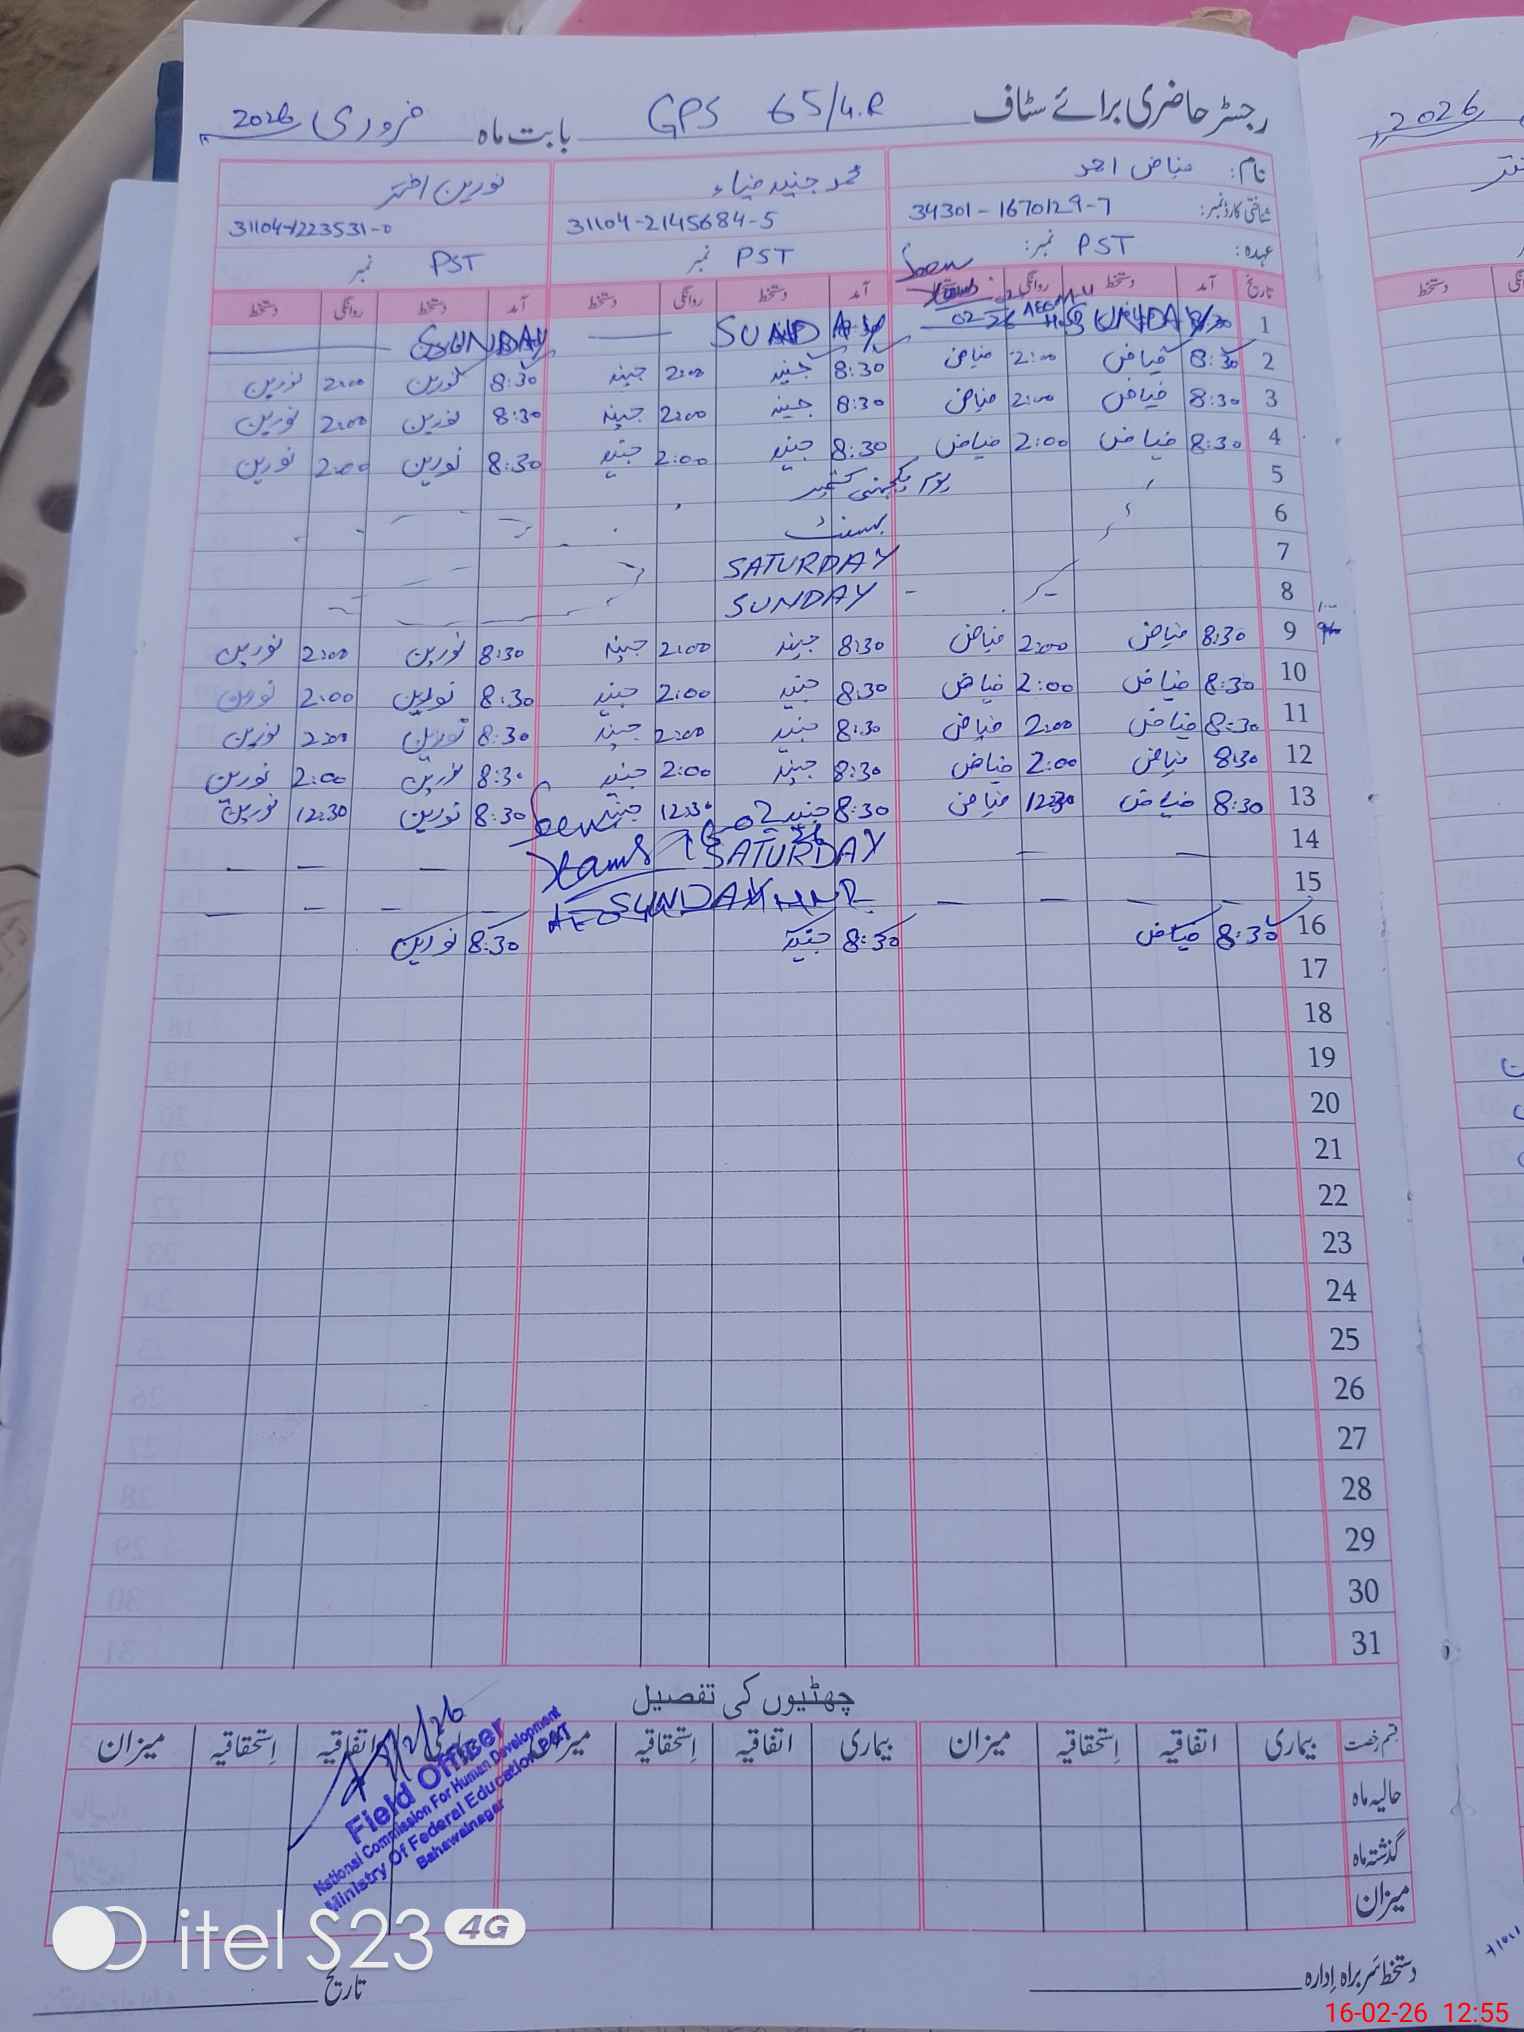 رجسٹر حاضری برائے سٹاف GPS 65/4.R بابت ماہ فروری 2026
نام: فیاض احمد محمد جنید ضیاء نورین اختر
شناختی کارڈ نمبر: 34301-1670129-7 31104-2145684-5 31104-1223531-0
عہدہ: PST نمبر: PST نمبر PST نمبر
Seen
تاریخ آمد دستخط روانگی دستخط آمد دستخط روانگی دستخط آمد دستخط روانگی دستخط
1 SUNDAY SUNDAY SUNDAY
2 8:30 فیاض 2:00 فیاض 8:30 جنید 2:00 جنید 8:30 نورین 2:00 نورین
3 8:30 فیاض 2:00 فیاض 8:30 جنید 2:00 جنید 8:30 نورین 2:00 نورین
4 8:30 فیاض 2:00 فیاض 8:30 جنید 2:00 جنید 8:30 نورین 2:00 نورین
5 یوم یکجہتی کشمیر
6 بسنت
7 SATURDAY
8 SUNDAY
9 8:30 فیاض 2:00 فیاض 8:30 جنید 2:00 جنید 8:30 نورین 2:00 نورین
10 8:30 فیاض 2:00 فیاض 8:30 جنید 2:00 جنید 8:30 نورین 2:00 نورین
11 8:30 فیاض 2:00 فیاض 8:30 جنید 2:00 جنید 8:30 نورین 2:00 نورین
12 8:30 فیاض 2:00 فیاض 8:30 جنید 2:00 جنید 8:30 نورین 2:00 نورین
13 8:30 فیاض 12:30 فیاض 8:30 جنید 12:30 جنید 8:30 نورین 12:30 نورین
Seen
14 SATURDAY
15 SUNDAY
16 8:30 فیاض 8:30 جنید 8:30 نورین
17
18
19
20
21
22
23
24
25
26
27
28
29
30
31
چھٹیوں کی تفصیل
قسم رخصت بیماری اتفاقیہ اِستحقاقیہ میزان بیماری اتفاقیہ اِستحقاقیہ میزان بیماری اتفاقیہ اِستحقاقیہ میزان
حالیہ ماہ
گذشتہ ماہ
میزان
Field Officer
National Commission For Human Development
Ministry Of Federal Education P&T
Bahawalnagar
دستخط سربراہ اِدارہ تاریخ
itel S23 4G
2026
16-02-26 12:55